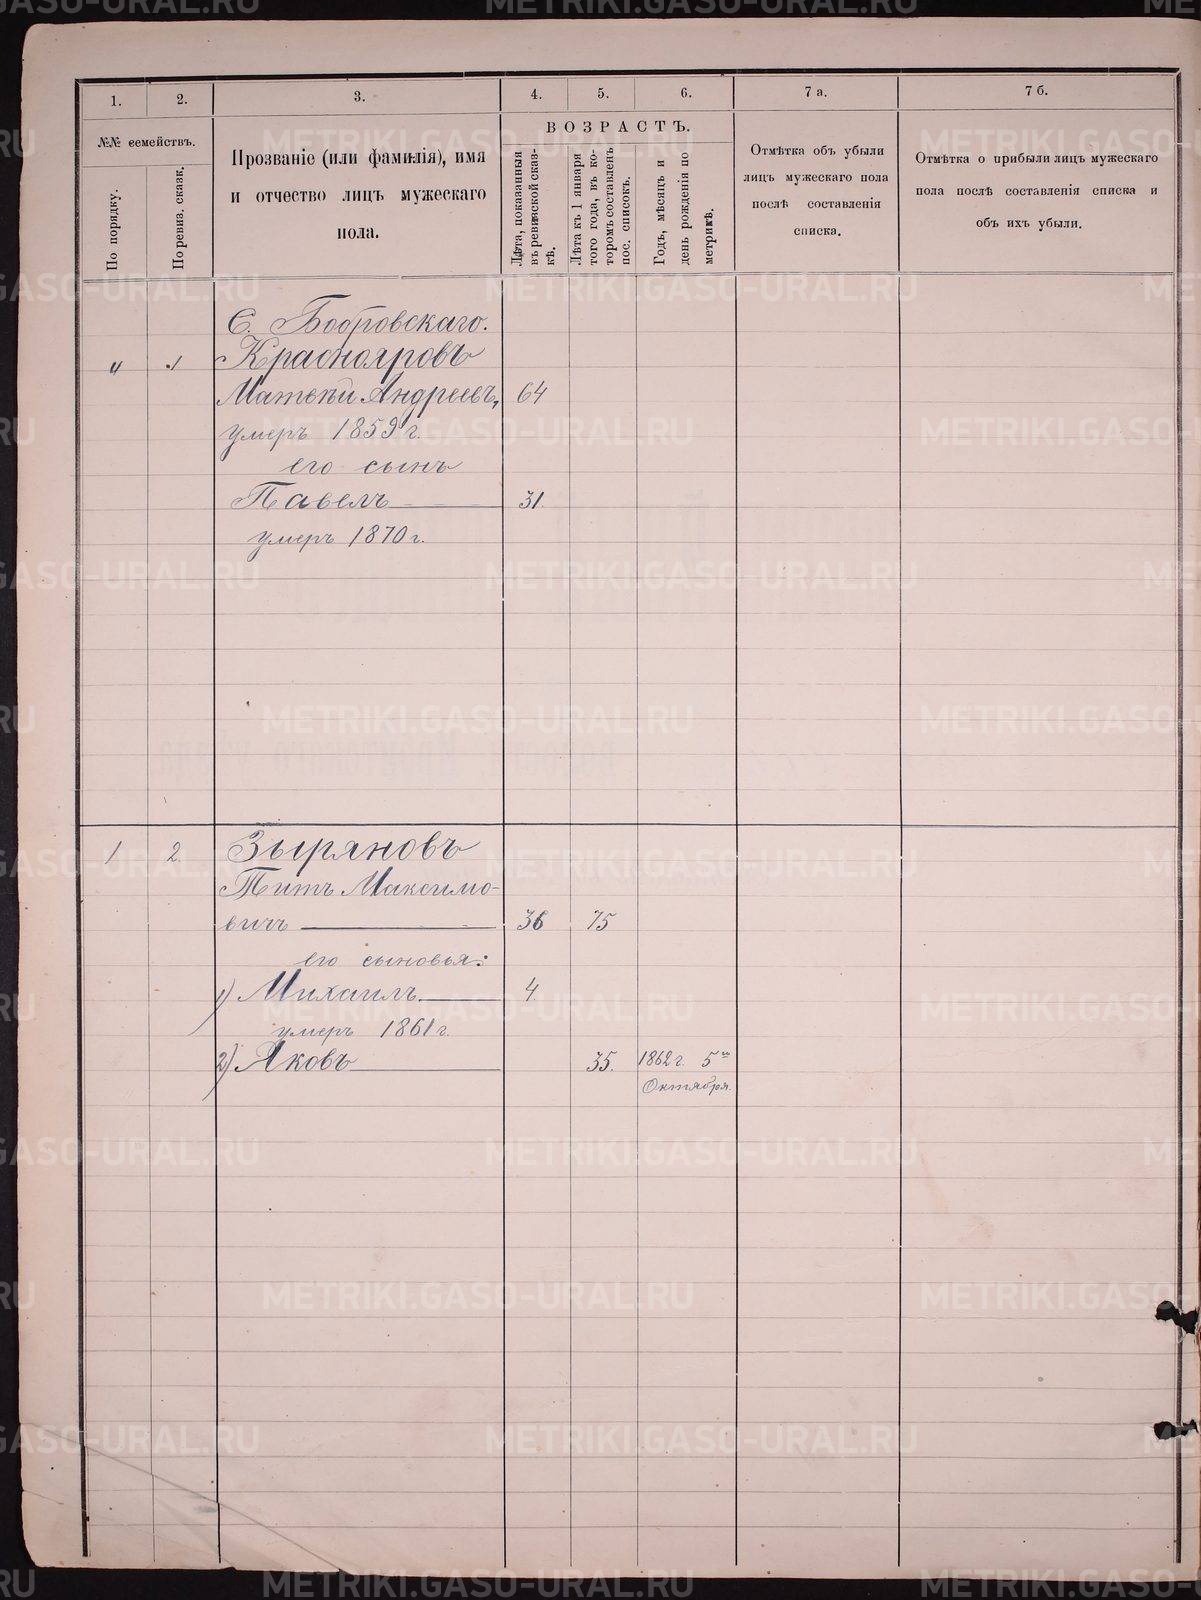 1.
2.
3.
4.
5.
6.
7 а.
7 б.
№№ семействъ.
По порядку.
По ревиз. сказк.
Прозваніе (или фамилія), имя
и отчество лицъ мужескаго
пола.
ВОЗРАСТЪ.
Лѣта, показанныя
въ ревизской сказ-
кѣ.
Лѣта къ 1 января
того года, въ ко-
торомъ составленъ
пос. списокъ.
Годъ, мѣсяцъ и
день рожденія по
метрикѣ.
Отмѣтка объ убыли
лицъ мужескаго пола
послѣ составленія
списка.
Отмѣтка о прибыли лицъ мужескаго
пола послѣ составленія списка и
объ ихъ убыли.
С. Бобровскаго.
" 1 Краснояровъ
Матвѣй Андреевъ, 64
умеръ 1859 г.
его сынъ
Павелъ 31.
умеръ 1870 г.
1 2. Зыряновъ
Титъ Максимо-
вичъ 36 75
его сыновья:
1) Михаилъ 4.
умеръ 1861 г.
2) Яковъ 35. 1862 г. 5го
Октября.
METRIKI.GASO-URAL.RU